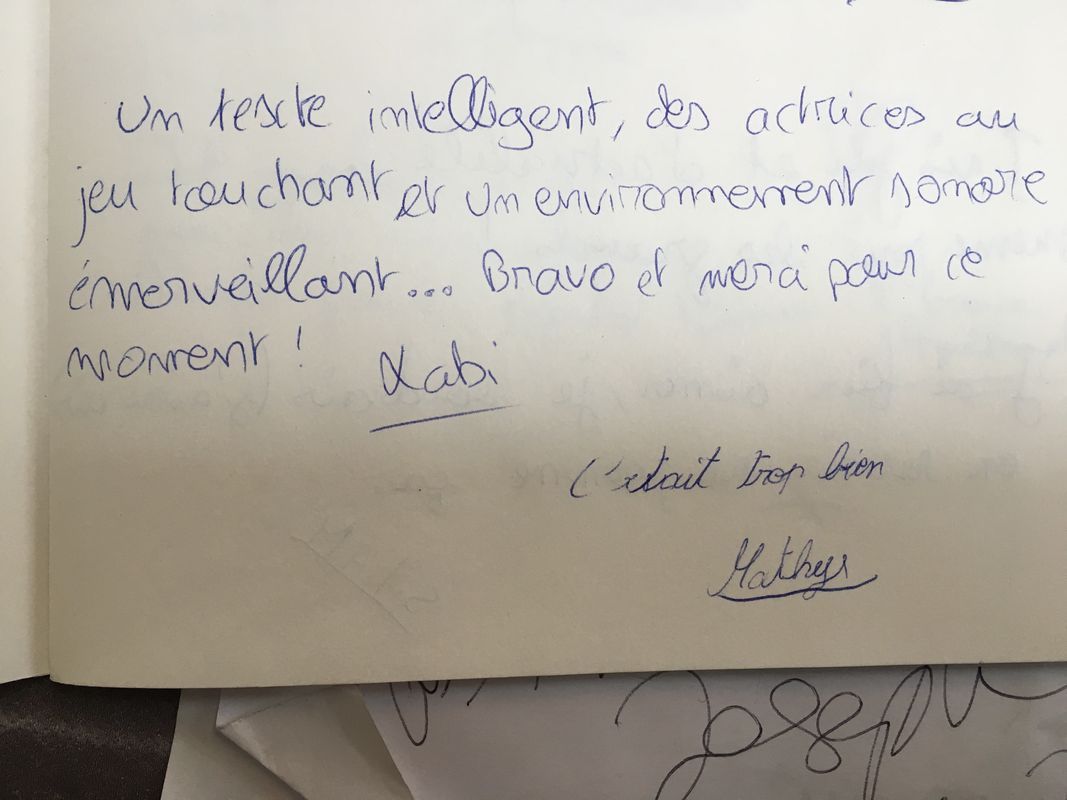 Un texte intelligent, des actrices au
jeu touchant et un environnement sonore
émerveillant... Bravo et merci pour ce
moment !
Xabi
C'etait trop bien
Mathys
Joseph